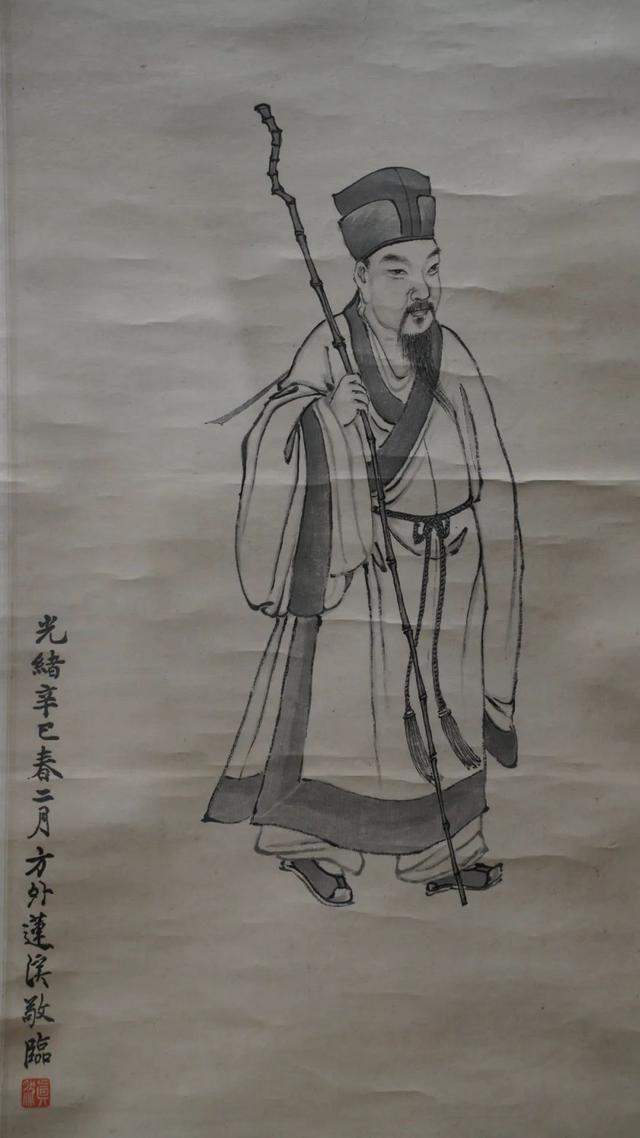 光緒辛巳春二月方外蓮溪敬臨